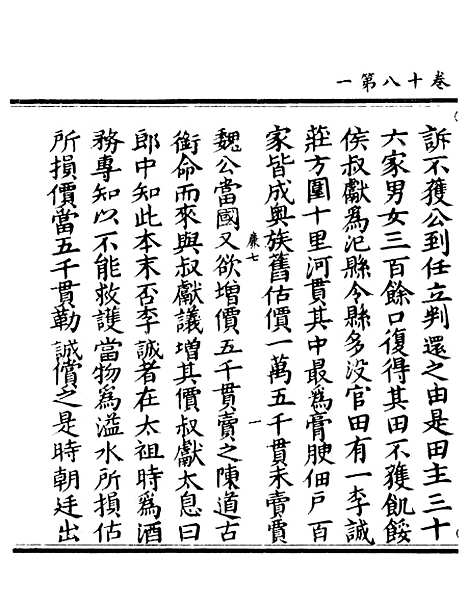 卷十八第一
訴不獲公到任立判還之由是田主三十
六家男女三百餘口復得其田不獲飢餒
侯叔獻為汜縣令縣多没官田有一李誠
莊方圍十里河貫其中最為膏腴佃户百
家皆成奥族舊估價一萬五千貫未賣賈
廉七
一
魏公當國又欲增價五千貫賣之陳道古
銜命而來與叔獻議增其價叔獻太息曰
郎中知此本末否李誠者在太祖時為酒
務專知以不能救護當物為溢水所損估
所損價當五千貫勒誠償之是時朝廷出